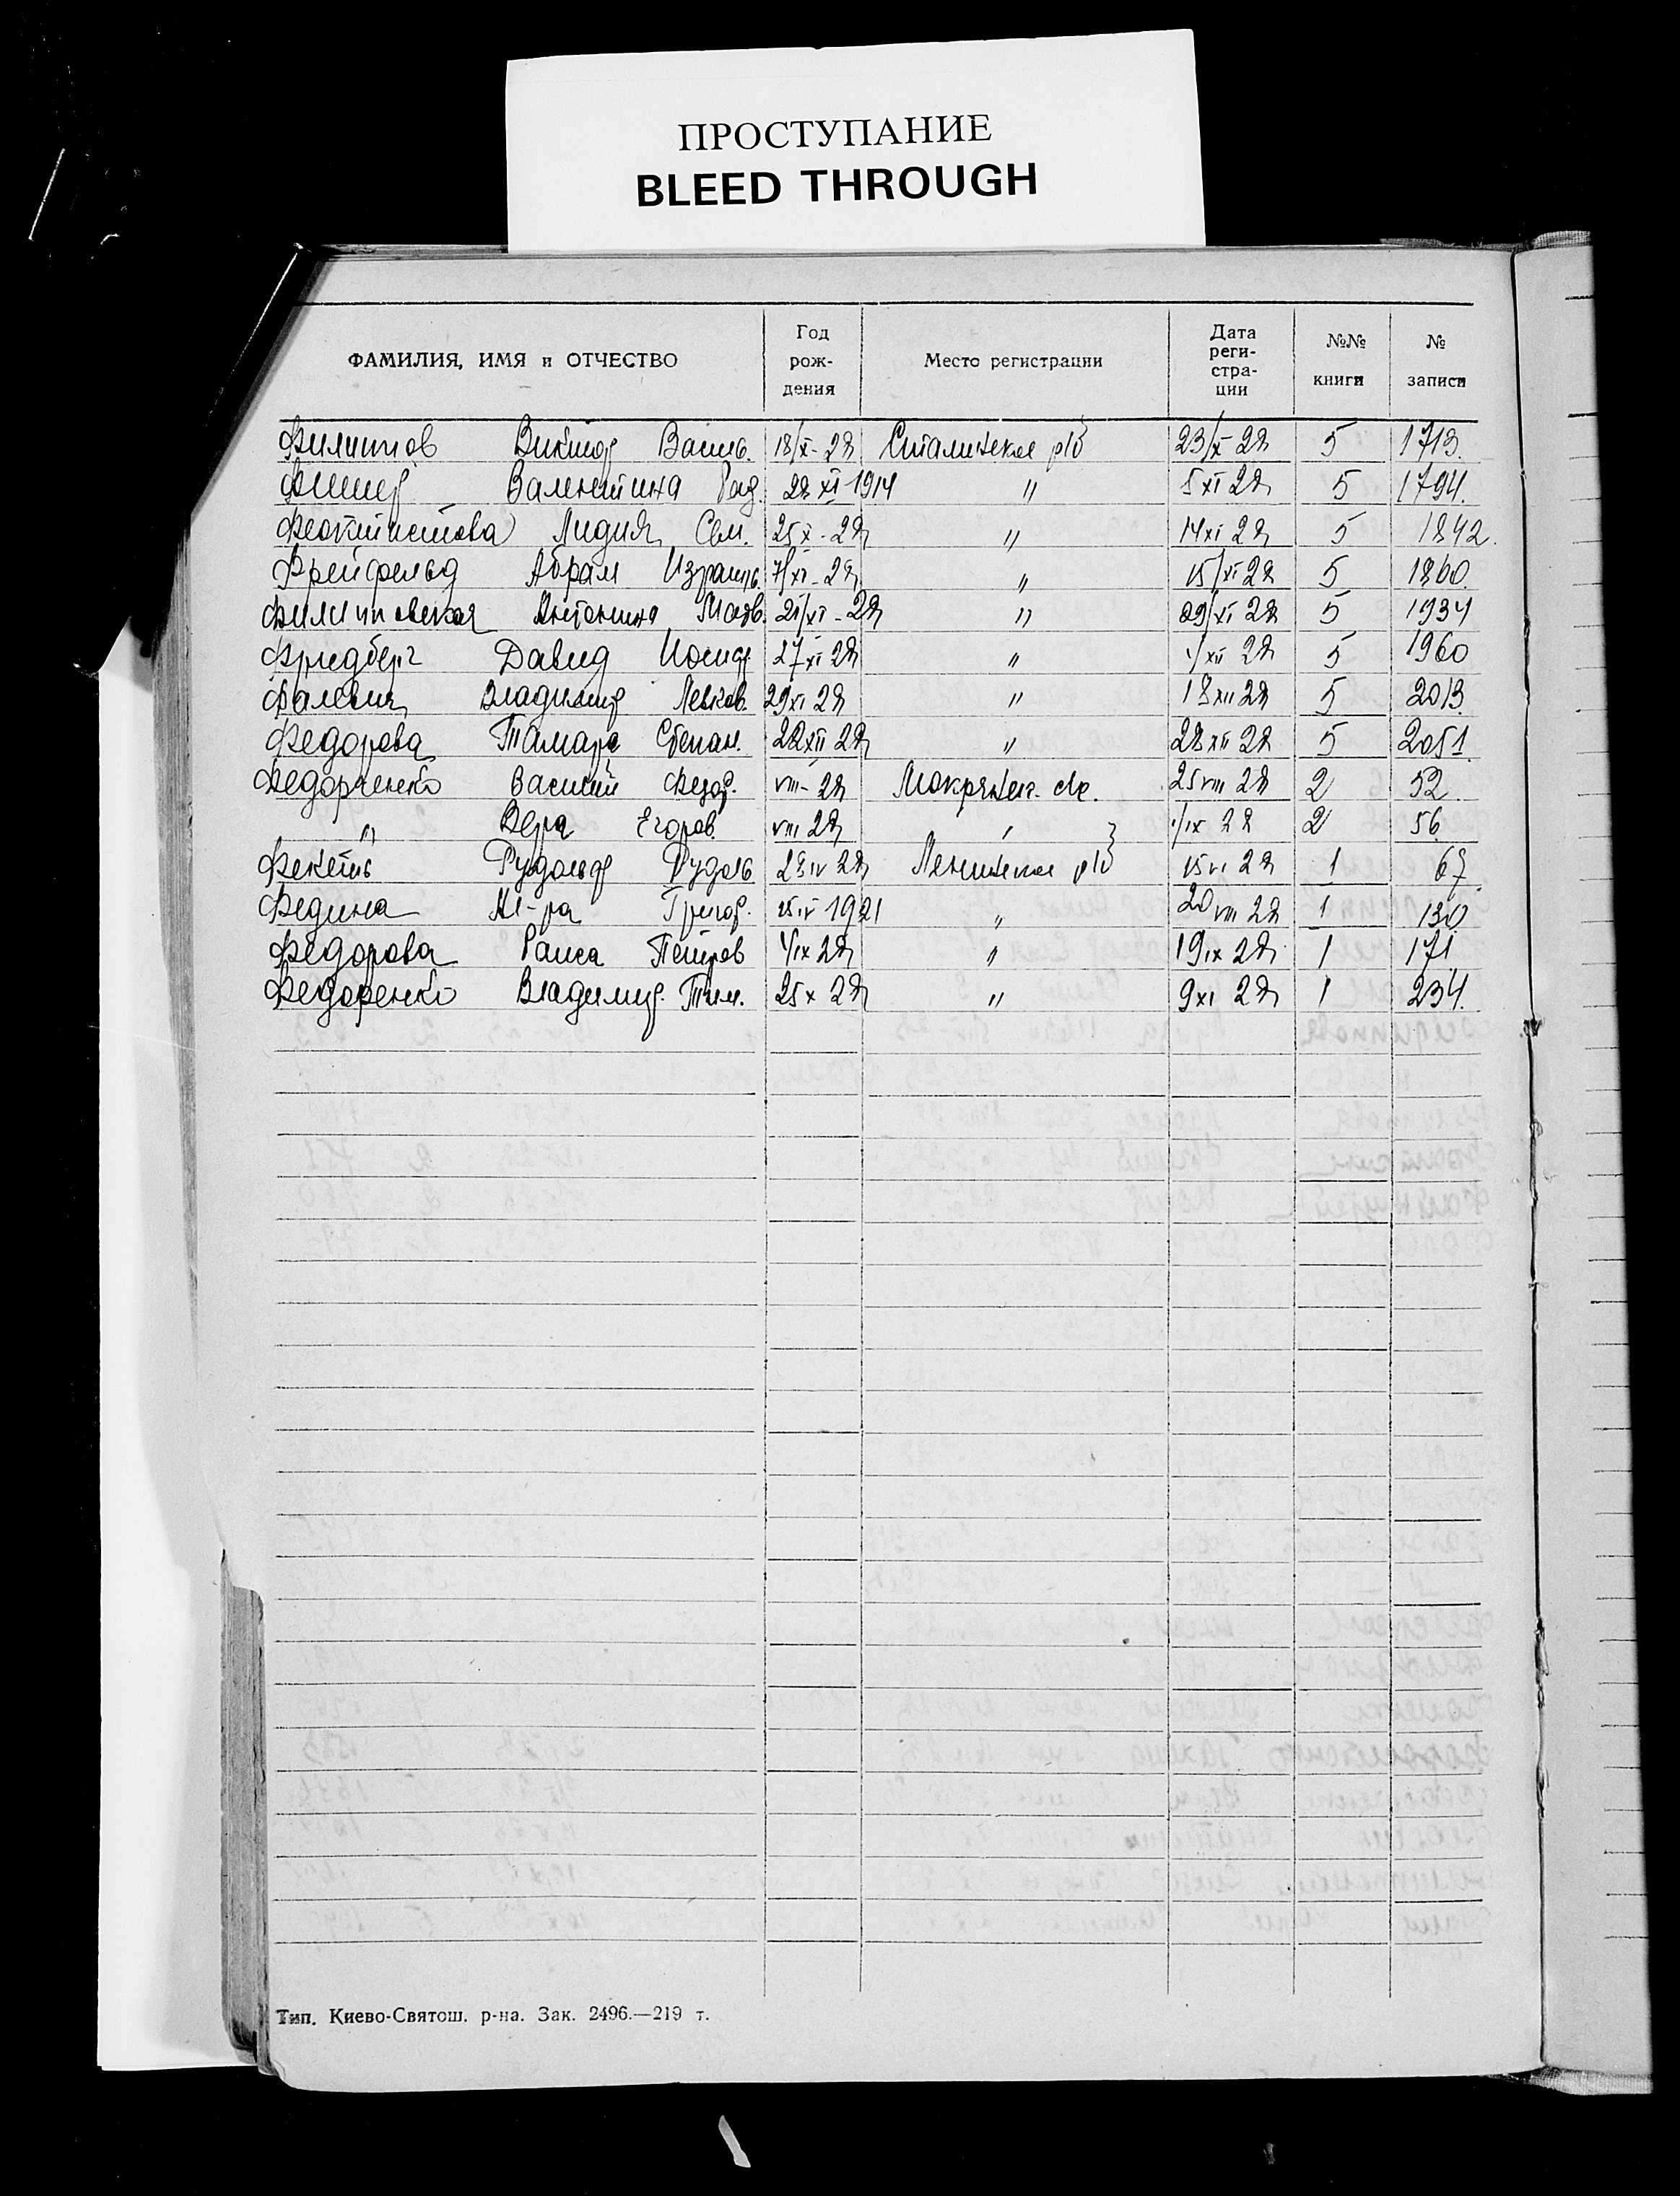 ПРОСТУПАНИЕ
BLEED THROUGH
ФАМИЛИЯ, ИМЯ и ОТЧЕСТВО Год рождения Место регистрации Дата регистрации №№ книги № записи
Филиппов Виктор Василь. 18/X-28 Сталинское р/б 23/X 28 5 1713.
Фишер Валентина 28 XI 1914 " 5 XI 28 5 1794.
Феоктистова Лидия Сем. 25 X-28 " 14 XI 28 5 1842.
Фрейфельд Абрам Израиль. 7/XI-28 " 15/XI 28 5 1860
Филипповская Антонина Матв. 21/XI-28 " 29/XI 28 5 1934
Фридберг Давид Иосиф 27 XI 28 " 1/XII 28 5 1960
Фалевич Владимир Левков. 29 XI 28 " 18 XII 28 5 2013
Федорова Тамара Степан. 22 XII 28 " 28 XII 28 5 2051
Федорченко Василий Федор. VIII-28 25 VIII 28 2 52
" Вера Егоров. VIII 28 " 1/IX 28 2 56
Фекеть Рудольф Рудоль 28 IV 28 Ленинское р/б 15 VI 28 1 67
Федина Ал-ра Григор. 25 IV 1921 " 20 VIII 28 1 130
Федорова Раиса Петров 1/IX 28 " 19 IX 28 1 171
Федоренко Владимир. Тим. 25 X 28 " 9 XI 28 1 234.
Тип. Киево-Святош. р-на. Зак. 2496.—219 т.